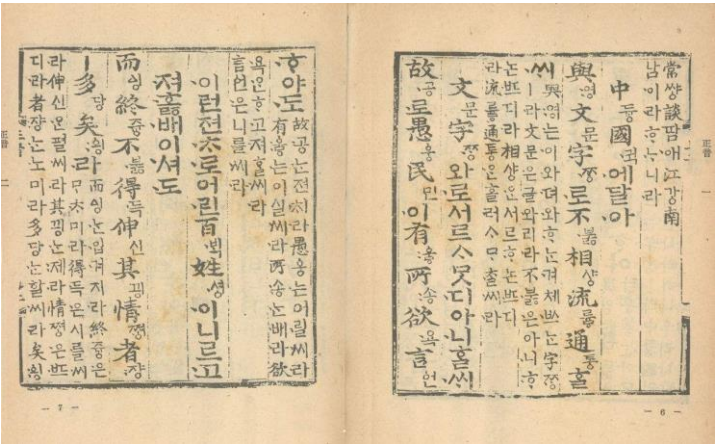 常썅談땀애江강南
남이라ᄒᆞᄂᆞ니라
中듕國귁에달아
與영文문字ᄍᆞᆼ로不부ᇙ相샹流류ᇢ通토ᇰᄒᆞᆯ
ᄊᆡ與영는이와뎌와ᄒᆞᄂᆞᆫ겨체ᄡᅳ는字ᄍᆞᆼ
ㅣ라文문은글와리라不부ᇙ은아니ᄒᆞ
논ᄠᅳ디라相샹ᄋᆞᆫ서르ᄒᆞ논ᄠᅳ디
라流류ᇢ通토ᇰᄋᆞᆫ흘러ᄉᆞᄆᆞᄎᆞᆯ씨라
文문字ᄍᆞᆼ와로서르ᄉᆞᄆᆞᆺ디아니ᄒᆞᆯᄊᆡ
故공로愚웅民민이有우ᇢ所송欲욕言언
— 6 —
ᄒᆞ야도故공ᄂᆞᆫ젼ᄎᆡ라愚웅는어릴씨라
有우ᇢ는이실씨라所송ᄂᆞᆫ배라欲
욕ᄋᆞᆫᄒᆞ고져ᄒᆞᆯ씨라
言언은니를씨라
이런젼ᄎᆞ로어린百ᄇᆡᆨ姓셔ᇰ이니르고
져호ᇙ배이셔도
而ᅀᅵᆼ終쥬ᇰ不부ᇙ得득伸신其끵情쪄ᇰ者쟝
ㅣ多당矣ᅌᅴᆼ라而ᅀᅵᆼ는입겨지라終쥬ᇰ은
ᄆᆞᄎᆞ미라得득은시를씨
라伸신ᄋᆞᆫ펼씨라其끵는제라情쪄ᇰ은ᄠᅳ
디라者쟝ᄂᆞᆫ노미라多당ᄂᆞᆫ할씨라矣ᅌᅴᆼ
正音 一
— 7 —